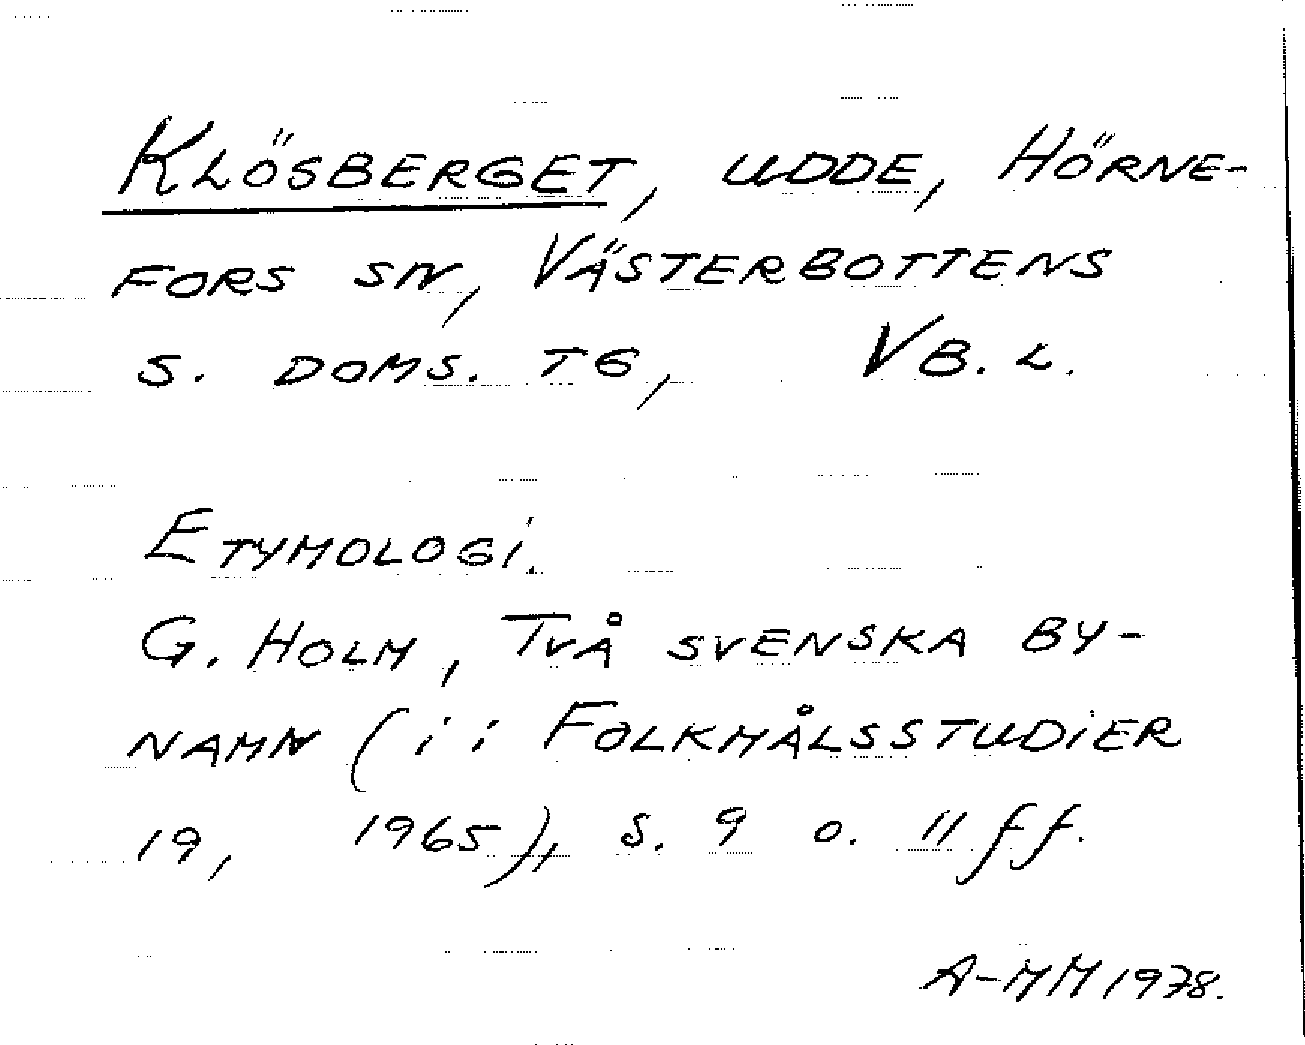 KLÖSBERGET, UDDE, HÖRNE-
FORS SN, VÄSTERBOTTENS
S. DOMS. TG, VB. L.
ETYMOLOGI.
G. HOLM, TVÅ SVENSKA BY-
NAMN (i: FOLKMÅLSSTUDIER
19, 1965), S. 9 o. 11 ff.
A-MM 1978.